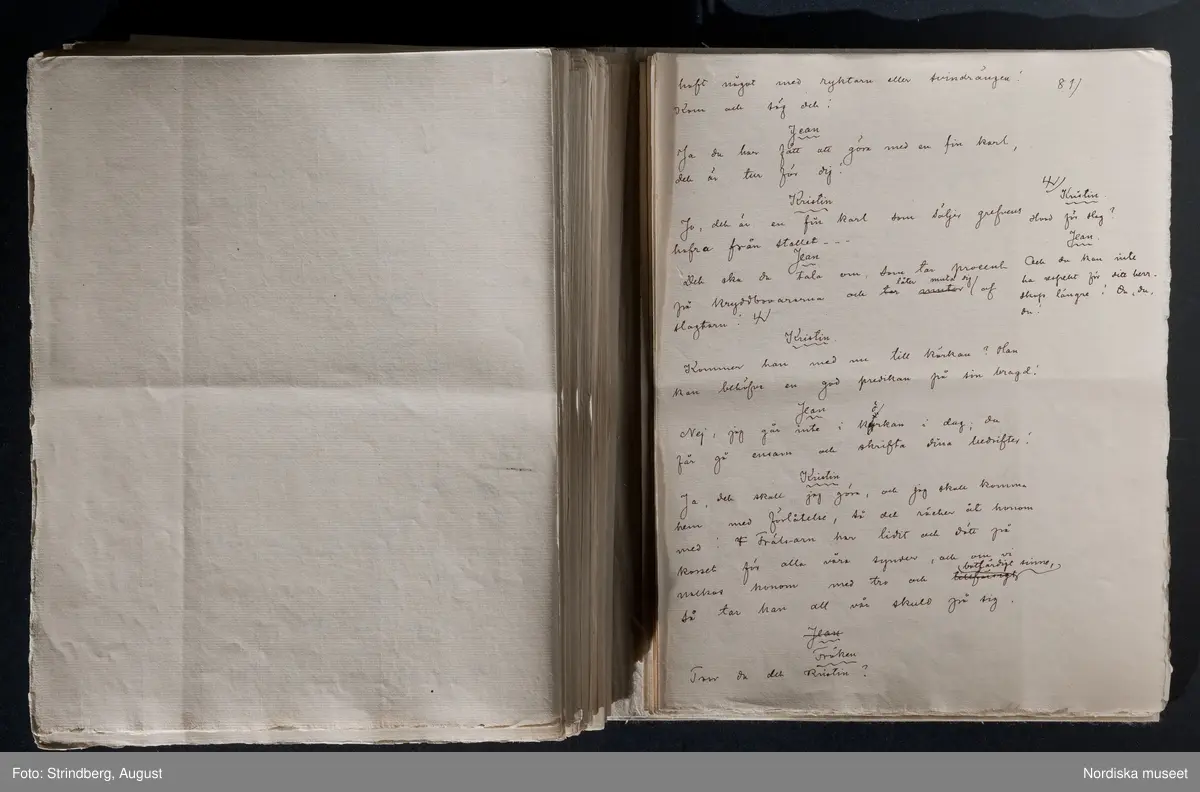 haft något med ryktarn eller svindrängen!
81/
Kom och säg det!
Jean
Ja du har fått att göra med en fin karl,
det är tur för dej!
Kristin
Jo, det är en fin karl som säljer grefvens
hafra från stallet ---
Jean
Det ska du tala om, som tar procent
på kryddbovarorna och låter muta dig
tar mutor af
slagtarn!
Kristin
Hvad för slag?
Jean.
Och du kan inte
ha respekt för ditt herr-
skap längre! Du, du,
du!
Kristin
Kommer han med nu till kärkan? Han
kan behöfva en god predikan på sin bragd!
Jean
Nej, jag går inte i körkan i dag; du
får gå ensam och skrifta dina bedrifter!
Kristin
Ja, det skall jag göra, och jag skall komma
hem med förlåtelse, så det räcker åt honom
med! Frälsarn har lidit och dött på
korset för alla våra synder, och om vi
nalkas honom med tro och botfärdigt sinne,
så tar han all vår skuld på sig.
Jean
Fröken
Tror du det Kristin?
Foto: Strindberg, August
Nordiska museet